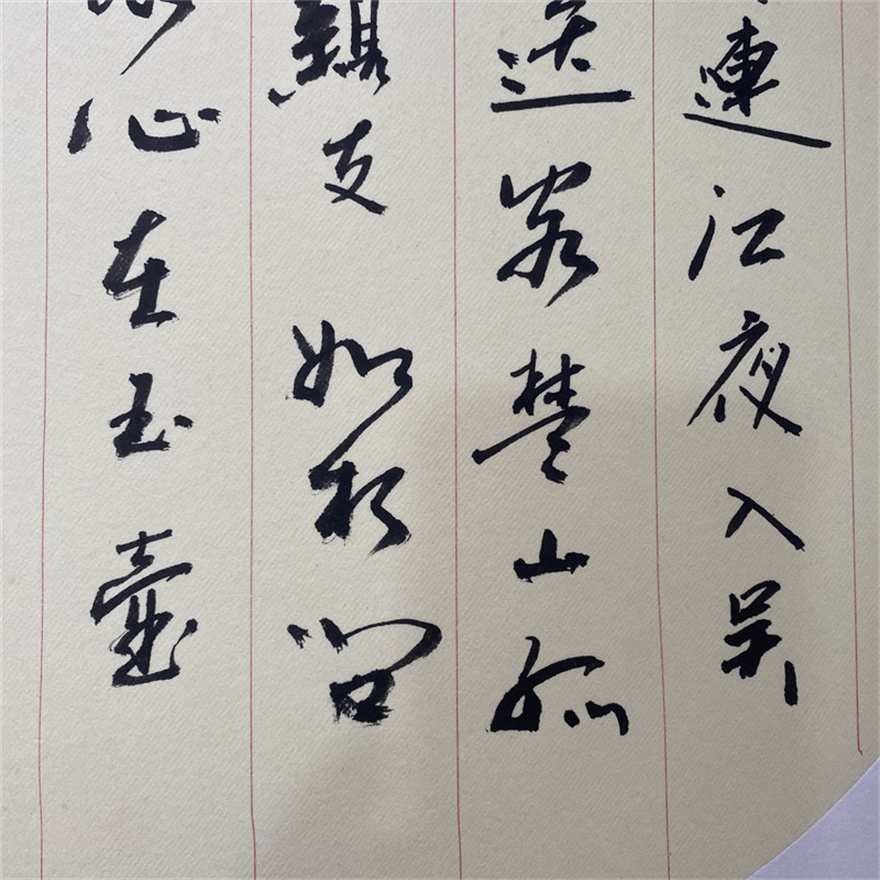 連江夜入吳
送客楚山孤
親友如相問
冰心在玉壺